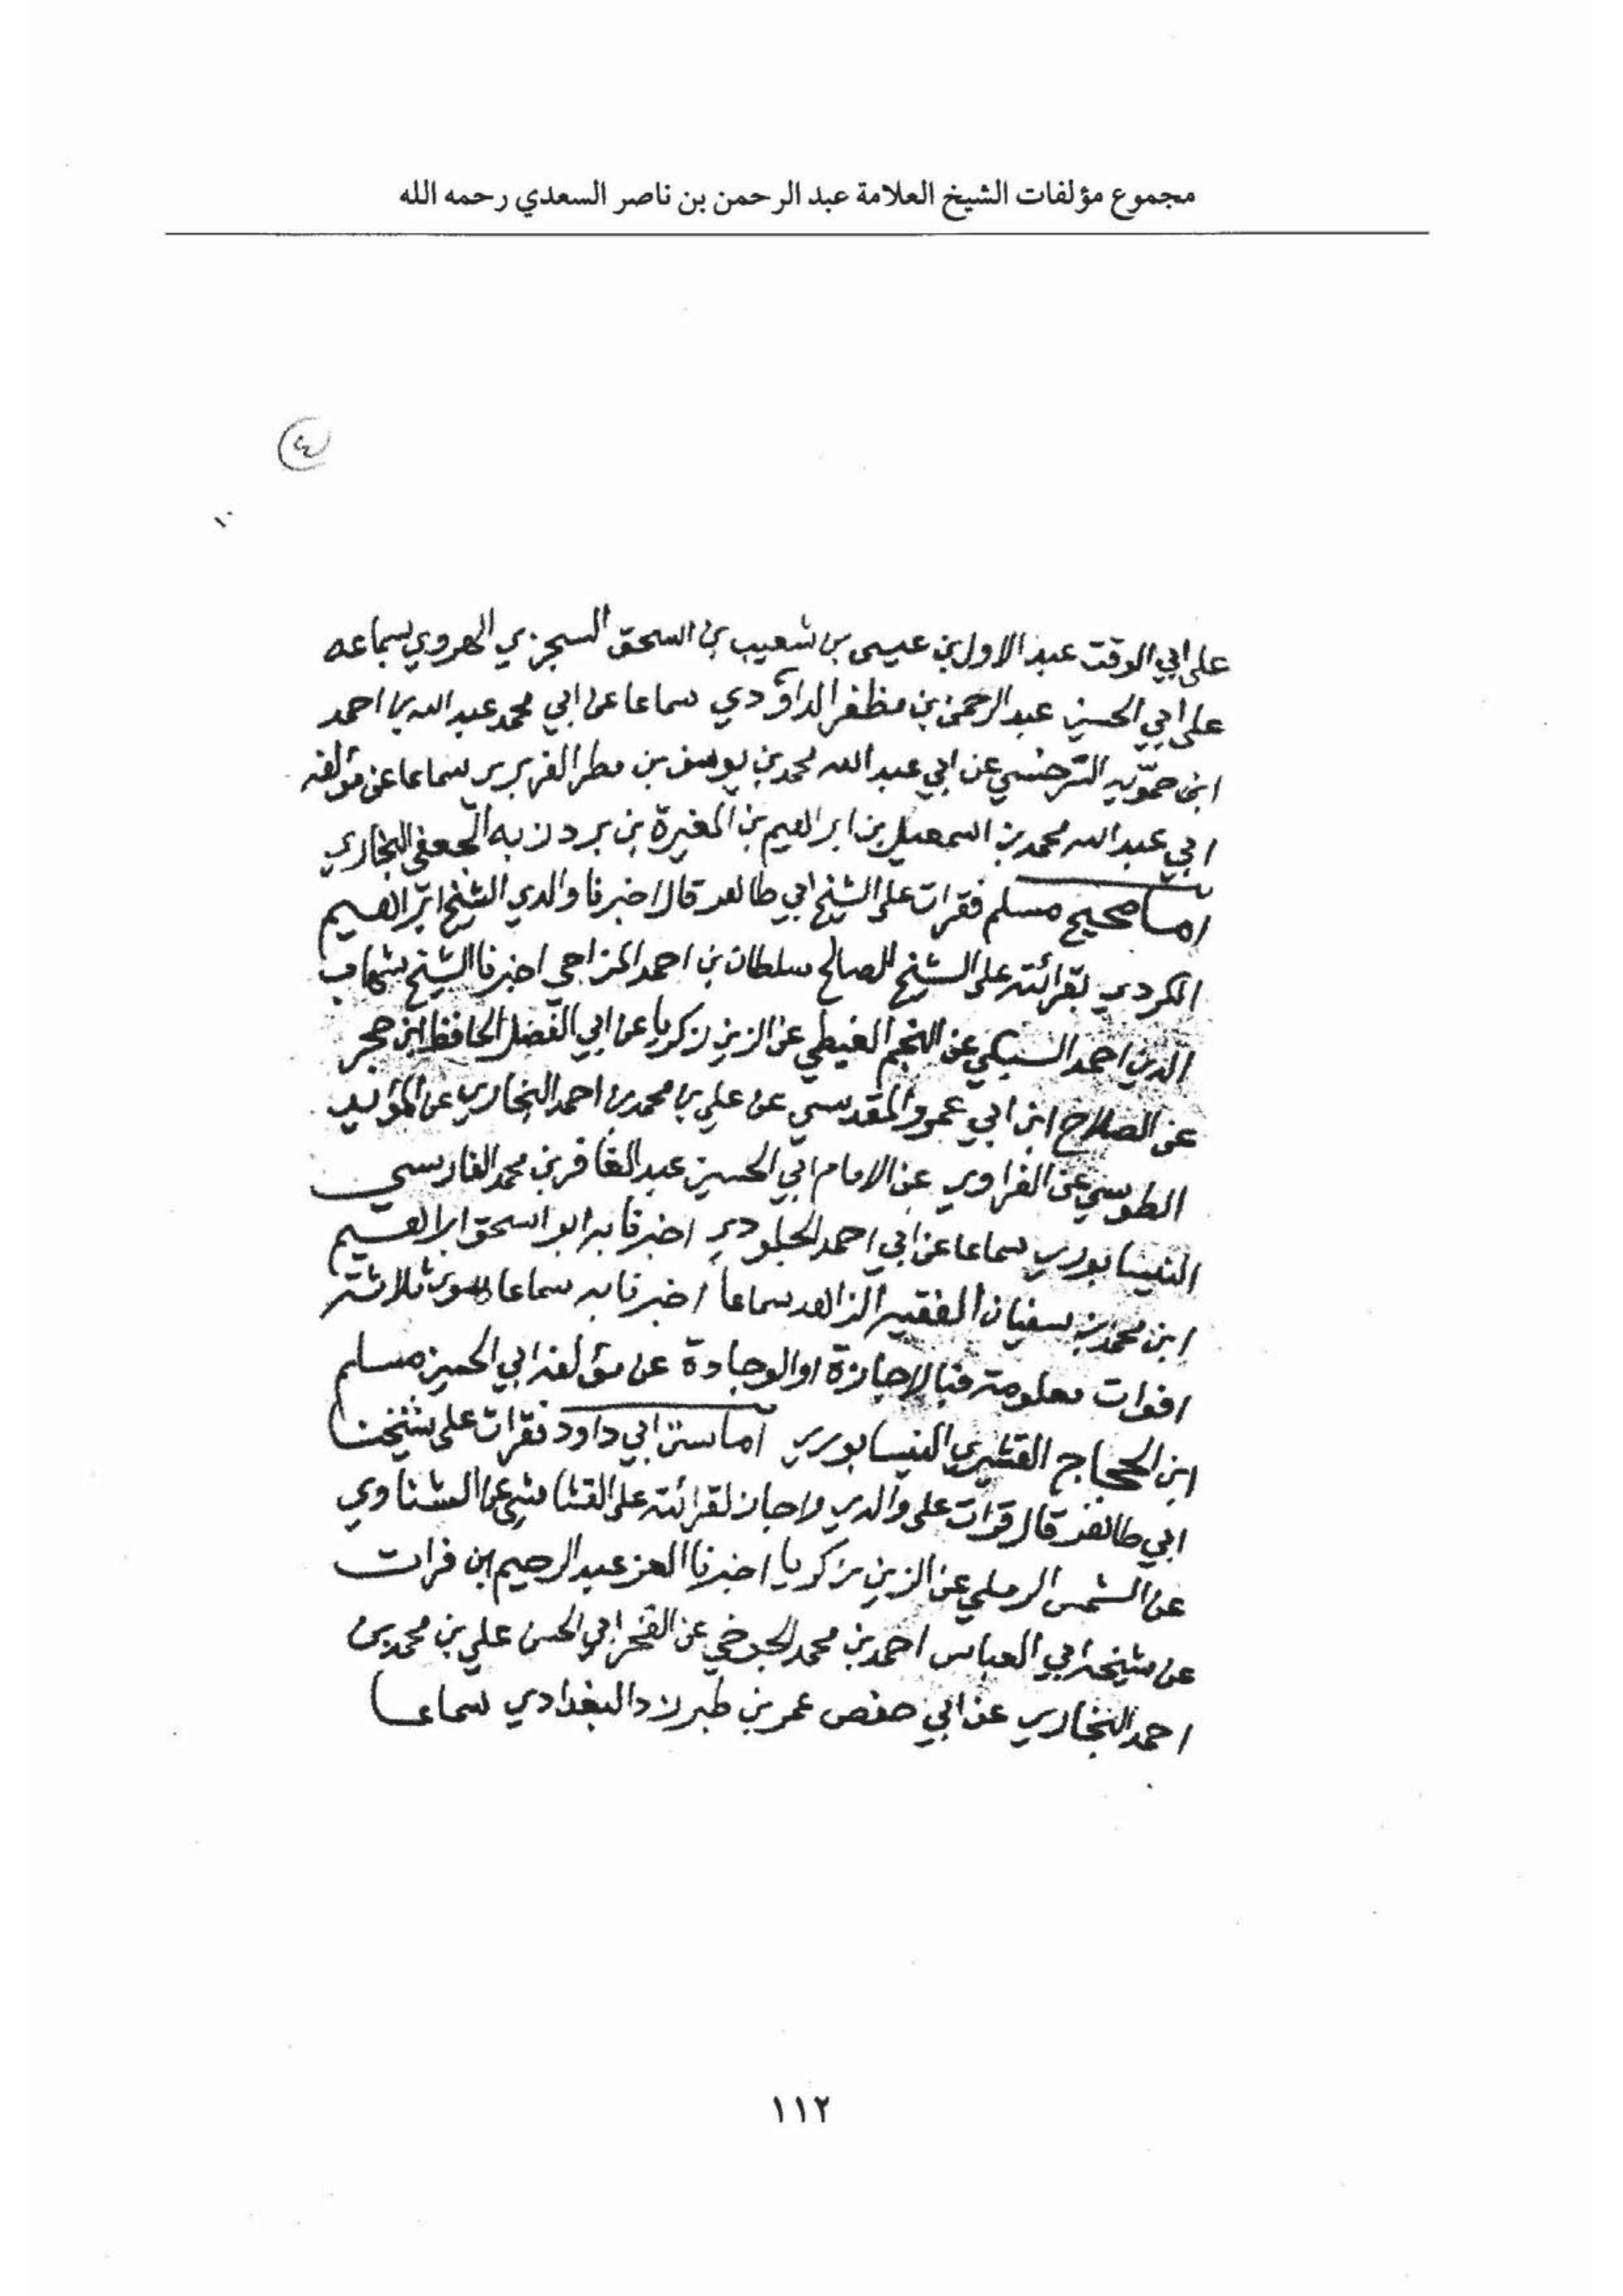 مجموع مؤلفات الشيخ العلامة عبد الرحمن بن ناصر السعدي رحمه الله
٤
على ابي الوقت عبد الاول بن عيسى بن شعيب بن اسحق السجزي الهروي بسماعه
على ابي الحسين عبد الرحمن بن مظفر الداؤدي سماعا عن ابي محمد عبد الله بن احمد
ابن حمّويه السرخسي عن ابي عبد الله محمد بن يوسف بن مطر الفربري سماعا عن مؤلفه
ابي عبد الله محمد بن اسمعيل بن ابراهيم بن المغيرة بن بردزبه الجعفي البخاري
أما صحيح مسلم فقرات على الشيخ ابي طاهر قال اخبرنا والدي الشيخ ابراهيم
الكردي بقرائته على الشيخ الصالح سلطان بن احمد المزاحي اخبرنا الشيخ شهاب
الدين احمد السبكي عن النجم الغيطي عن الزين زكريا عن ابي الفضل الحافظ ابن حجر
عن الصلاح ابن ابي عمرو المقدسي عن علي بن محمد بن احمد البخاري عن المؤيد
الطوسي عن الفراوي عن الامام ابي الحسين عبد الغافر بن محمد الفارسي
النيسابوري سماعا عن ابي احمد الجلودي اخبرنا به ابو اسحق ابراهيم
ابن محمد بن سفيان الفقيه الزاهد سماعا اخبرنا به سماعا سوى ثلاثة
افوات معلومة فبالاجازة او الوجادة عن مؤلفه ابي الحسين مسلم
ابن الحجاج القشيري النيسابوري أما سنن ابي داود فقرات على شيخنا
ابي طاهر قال قرات على والدي واجاز لقرائته على القشاشي عن الشناوي
عن الشمس الرملي عن الزين زكريا اخبرنا العز عبد الرحيم بن فرات
عن شيخه ابي العباس احمد بن محمد الجوخي عن الفخر ابي الحسن علي بن محمد بن
احمد البخاري عن ابي حفص عمر بن طبرزد البغدادي سماعا
١١٢